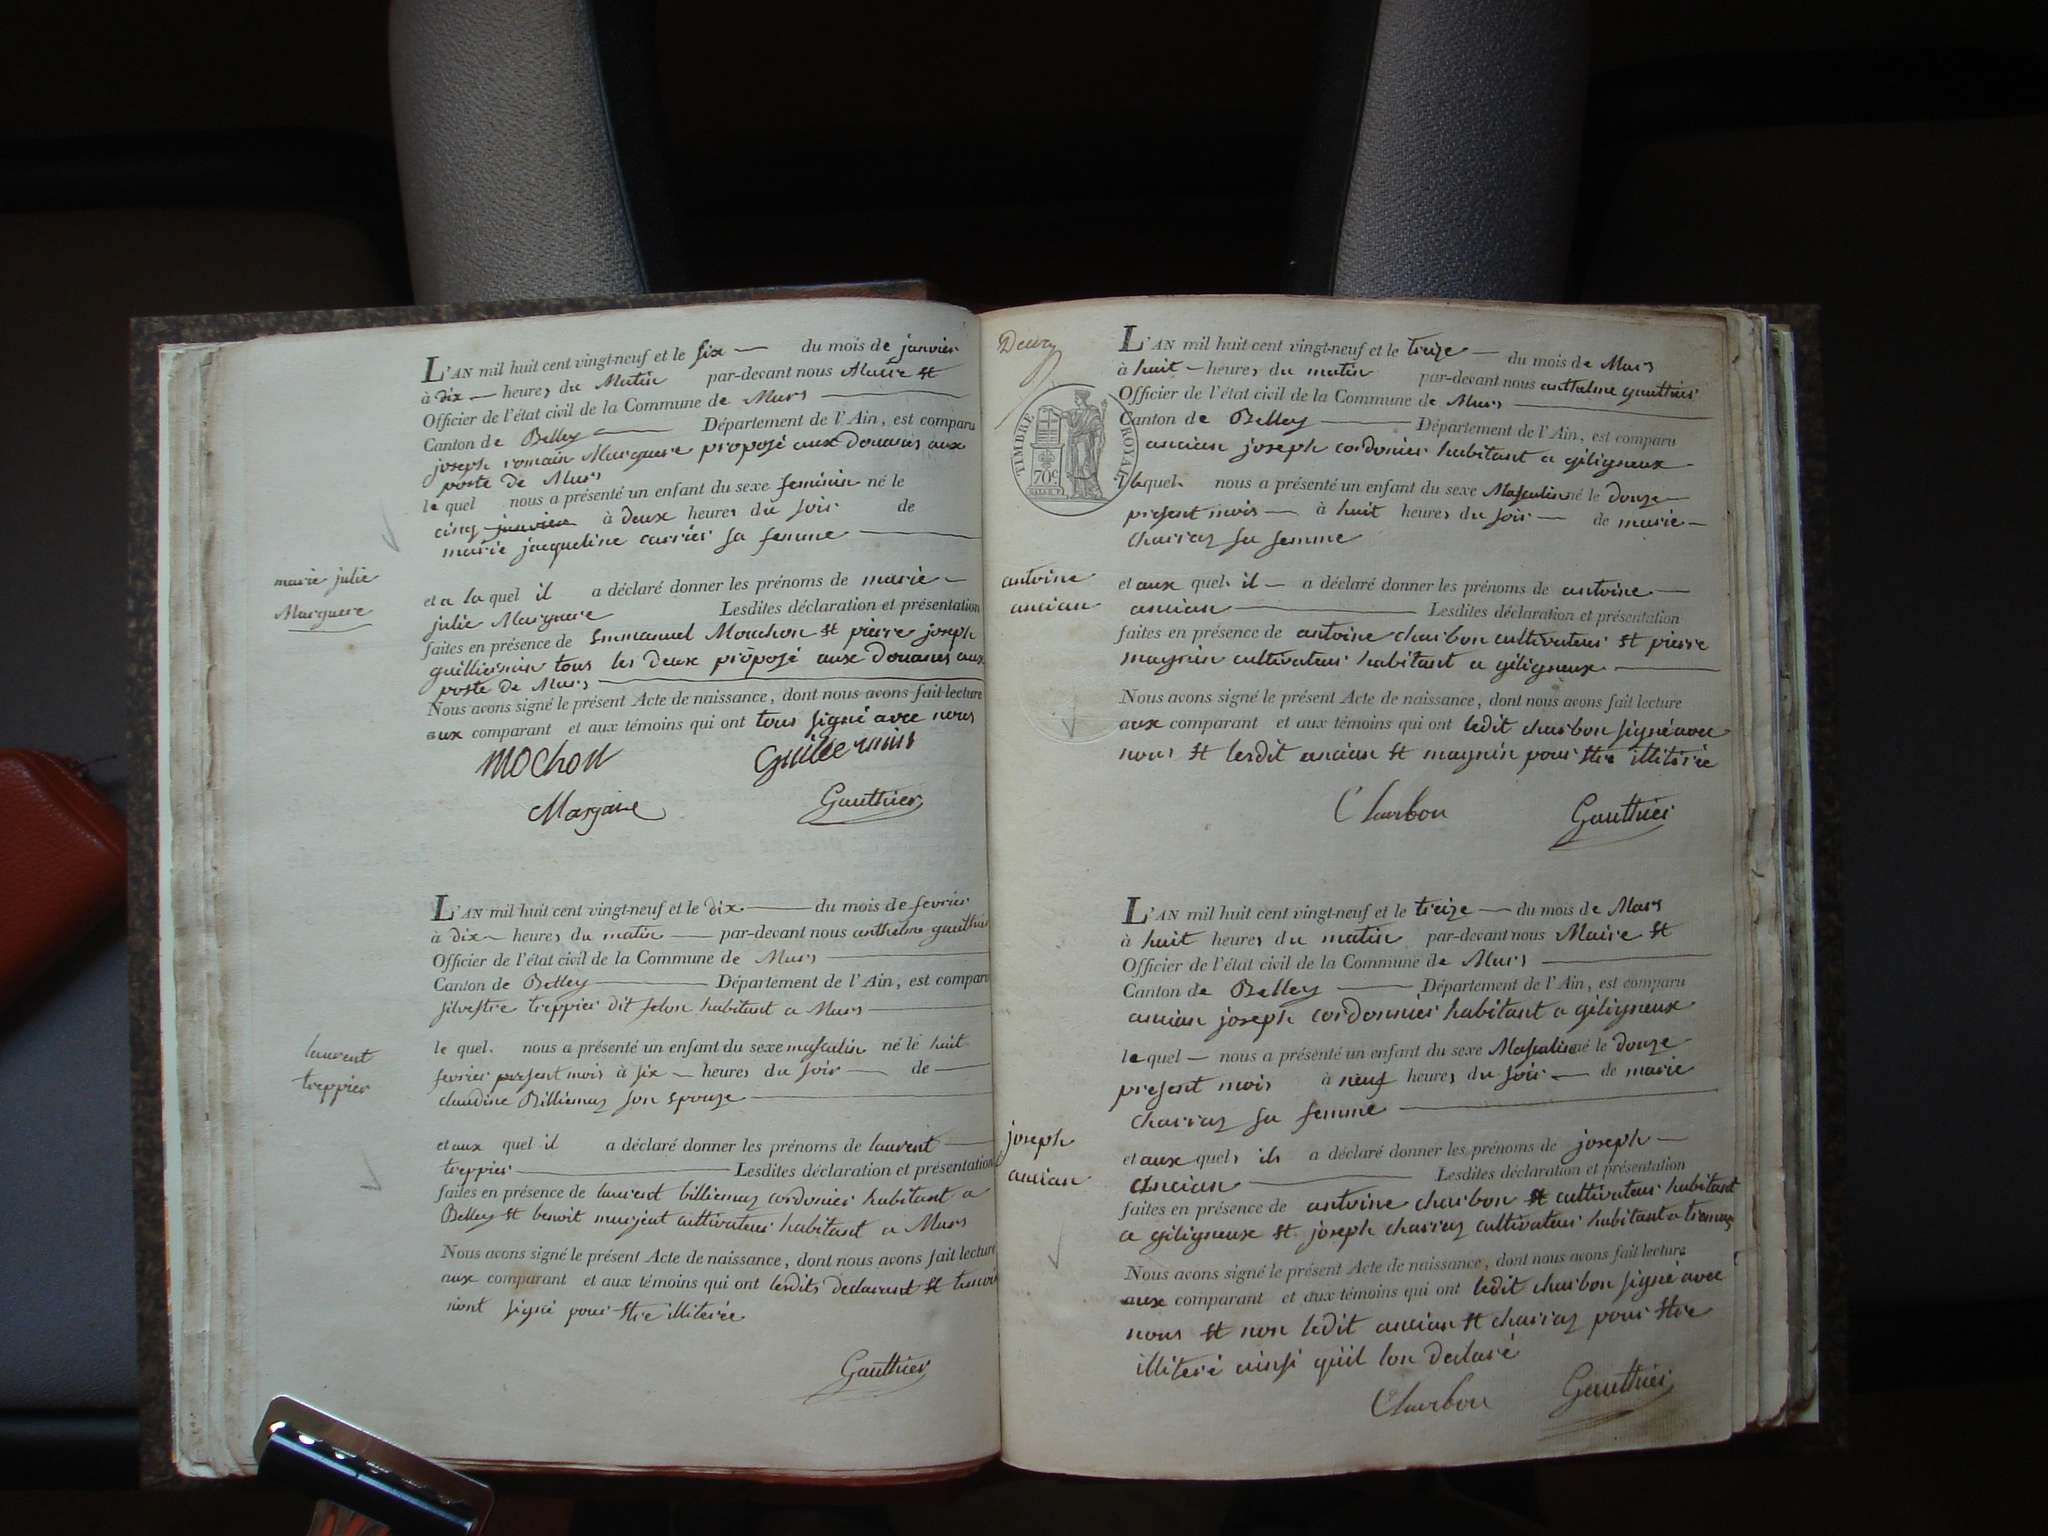 L'AN mil huit cent vingt-neuf et le six du mois de janvier
à dix heures du Matin par-devant nous Maire et
Officier de l'état civil de la Commune de Murs
Canton de Belley Département de l'Ain, est comparu
joseph romain Marguere proposé aux Douanes aux
poste de Murs
le quel nous a présenté un enfant du sexe feminin né le
cinq janvier à deux heures du soir de
marie jacqueline carrier sa femme
marie julie
Marguere
et a la quel il a déclaré donner les prénoms de marie
julie Marguere Lesdites déclaration et présentation
faites en présence de Emmanuel Mouchon et pierre joseph
guillermin tous les deux proposé aux Douanes aux
poste de Murs
Nous avons signé le présent Acte de naissance, dont nous avons fait lecture
aux comparant et aux témoins qui ont tous signé avec nous
Mochon Guillermin
Gauthier
L'AN mil huit cent vingt-neuf et le dix du mois de fevrier
à dix heures du matin par-devant nous anthelme gauthier
Officier de l'état civil de la Commune de Murs
Canton de Belley Département de l'Ain, est comparu
silvestre treppier dit felon habitant a Murs
laurent
treppier
le quel nous a présenté un enfant du sexe masculin né le huit
fevrier present mois à six heures du soir de
claudine Billiemaz son epouze
et aux quel il a déclaré donner les prénoms de laurent
treppier Lesdites déclaration et présentation
faites en présence de laurent billiemaz cordonier habitant a
Belley et benoit cultivateur habitant a Murs
Nous avons signé le présent Acte de naissance, dont nous avons fait lecture
aux comparant et aux témoins qui ont lesdits declarent et temoin
nont signé pour etre illiterée
Gauthier
TIMBRE ROYAL
70c
L'AN mil huit cent vingt-neuf et le treize du mois de Mars
à huit heures du matin par-devant nous anthelme gauthier
Officier de l'état civil de la Commune de Murs
Canton de Belley Département de l'Ain, est comparu
ancian joseph cordonier habitant a giligneux
lequel nous a présenté un enfant du sexe Masculin né le douze
present mois à huit heures du soir de marie
charray sa femme
antoine
ancian
et aux quel il a déclaré donner les prénoms de antoine
ancian Lesdites déclaration et présentation
faites en présence de antoine charbon cultivateur et pierre
maynin cultivateur habitant a giligneux
Nous avons signé le présent Acte de naissance, dont nous avons fait lecture
aux comparant et aux témoins qui ont ledit charbon signé avec
nous et lesdit ancian et maynin pour etre illiterée
Charbon Gauthier
L'AN mil huit cent vingt-neuf et le treize du mois de Mars
à huit heures du matin par-devant nous Maire et
Officier de l'état civil de la Commune de Murs
Canton de Belley Département de l'Ain, est comparu
ancian joseph cordonnier habitant a giligneux
le quel nous a présenté un enfant du sexe Masculin né le douze
present mois à neuf heures du soir de marie
charray sa femme
joseph
ancian
et aux quels ils a déclaré donner les prénoms de joseph
ancian Lesdites déclaration et présentation
faites en présence de antoine charbon et cultivateur habitant
a giligneux et joseph charray cultivateur habitant a
Nous avons signé le présent Acte de naissance, dont nous avons fait lecture
aux comparant et aux témoins qui ont ledit charbon signé avec
nous et non ledit ancian et charray pour etre
illiteré ainsi quil lon declaré
Charbon Gauthier